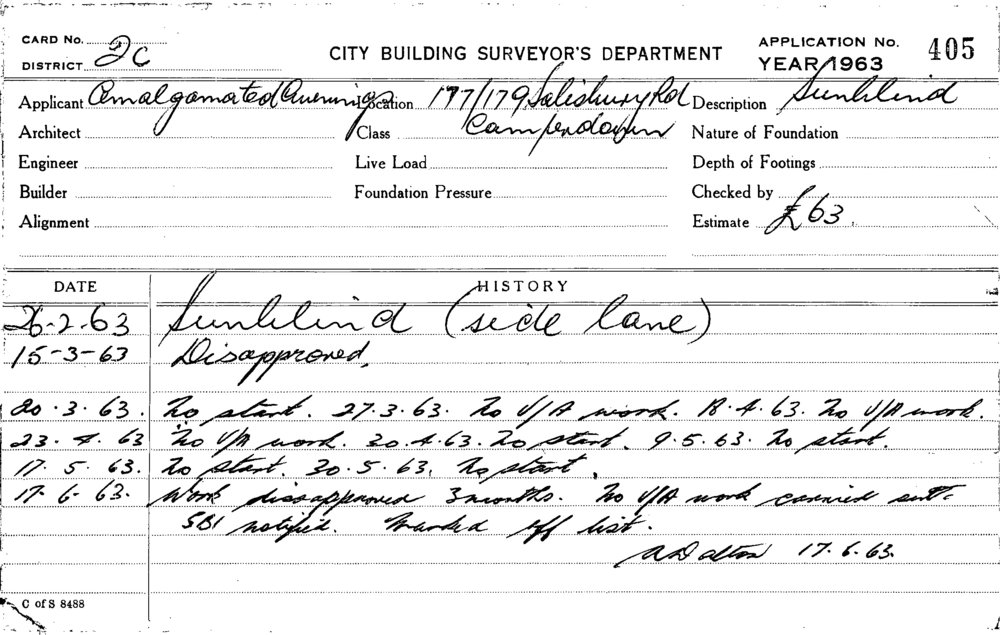 CARD No. CITY BUILDING SURVEYOR'S DEPARTMENT APPLICATION No. 405
DISTRICT 2c YEAR/1963
Applicant Amalgamated Awnings Location 177/179 Salisbury Rd Description Sunblind
Architect Class Camperdown Nature of Foundation
Engineer Live Load Depth of Footings
Builder Foundation Pressure Checked by
Alignment Estimate £63.
DATE HISTORY
26-2-63 Sunblind (side lane)
15-3-63 Disapproved.
20.3.63. No start. 27.3.63. No U/A work. 18.4.63. No U/A work.
23.4.63 No U/A work. 30.4.63. No start. 9.5.63. No start.
17.5.63. No start. 30.5.63. No start.
17.6.63. Work dissapproved 3 months. No U/A work carried out.
SBI notified. Marked off list.
A Dalton 17.6.63.
C of S 8488